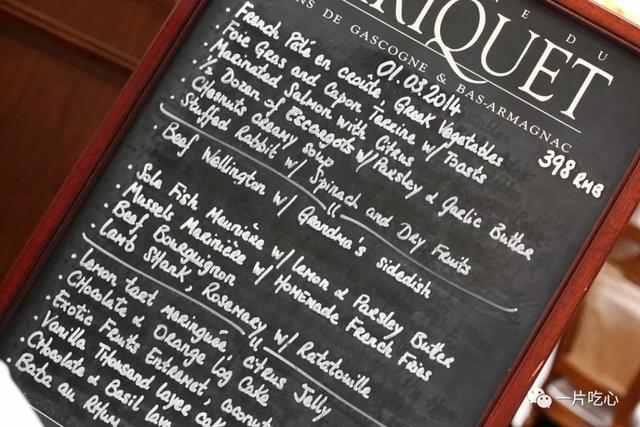 NE DU
RIQUET
NS DE GASCOGNE & BAS-ARMAGNAC
01.03.2014
398 RMB
· French Pâté en croûte, Greek Vegetables
· Foie Gras and Capon Terrine w/ Toasts
· Marinated Salmon with Citrus
· ½ Dozen of Escargots w/ Parsley & Garlic Butter
· Chesnuts creamy soup
· Stuffed Rabbit w/ Spinach and Dry Fruits
· Beef Wellington w/ Grandma's sidedish
· Sole Fish Meunière w/ Lemon & Parsley Butter
· Mussels Marinière w/ Homemade French Fries
· Beef Bourguignon
· Lamb Shank, Rosemary w/ Ratatouille
· Lemon tart meringuée, Citrus Jelly
· Chocolate & Orange log Cake
· Exotic Fruits Entremet, coconut
· Vanilla Thousand layer cake
· Chocolate & Basil
· Baba au Rhum
一片吃心